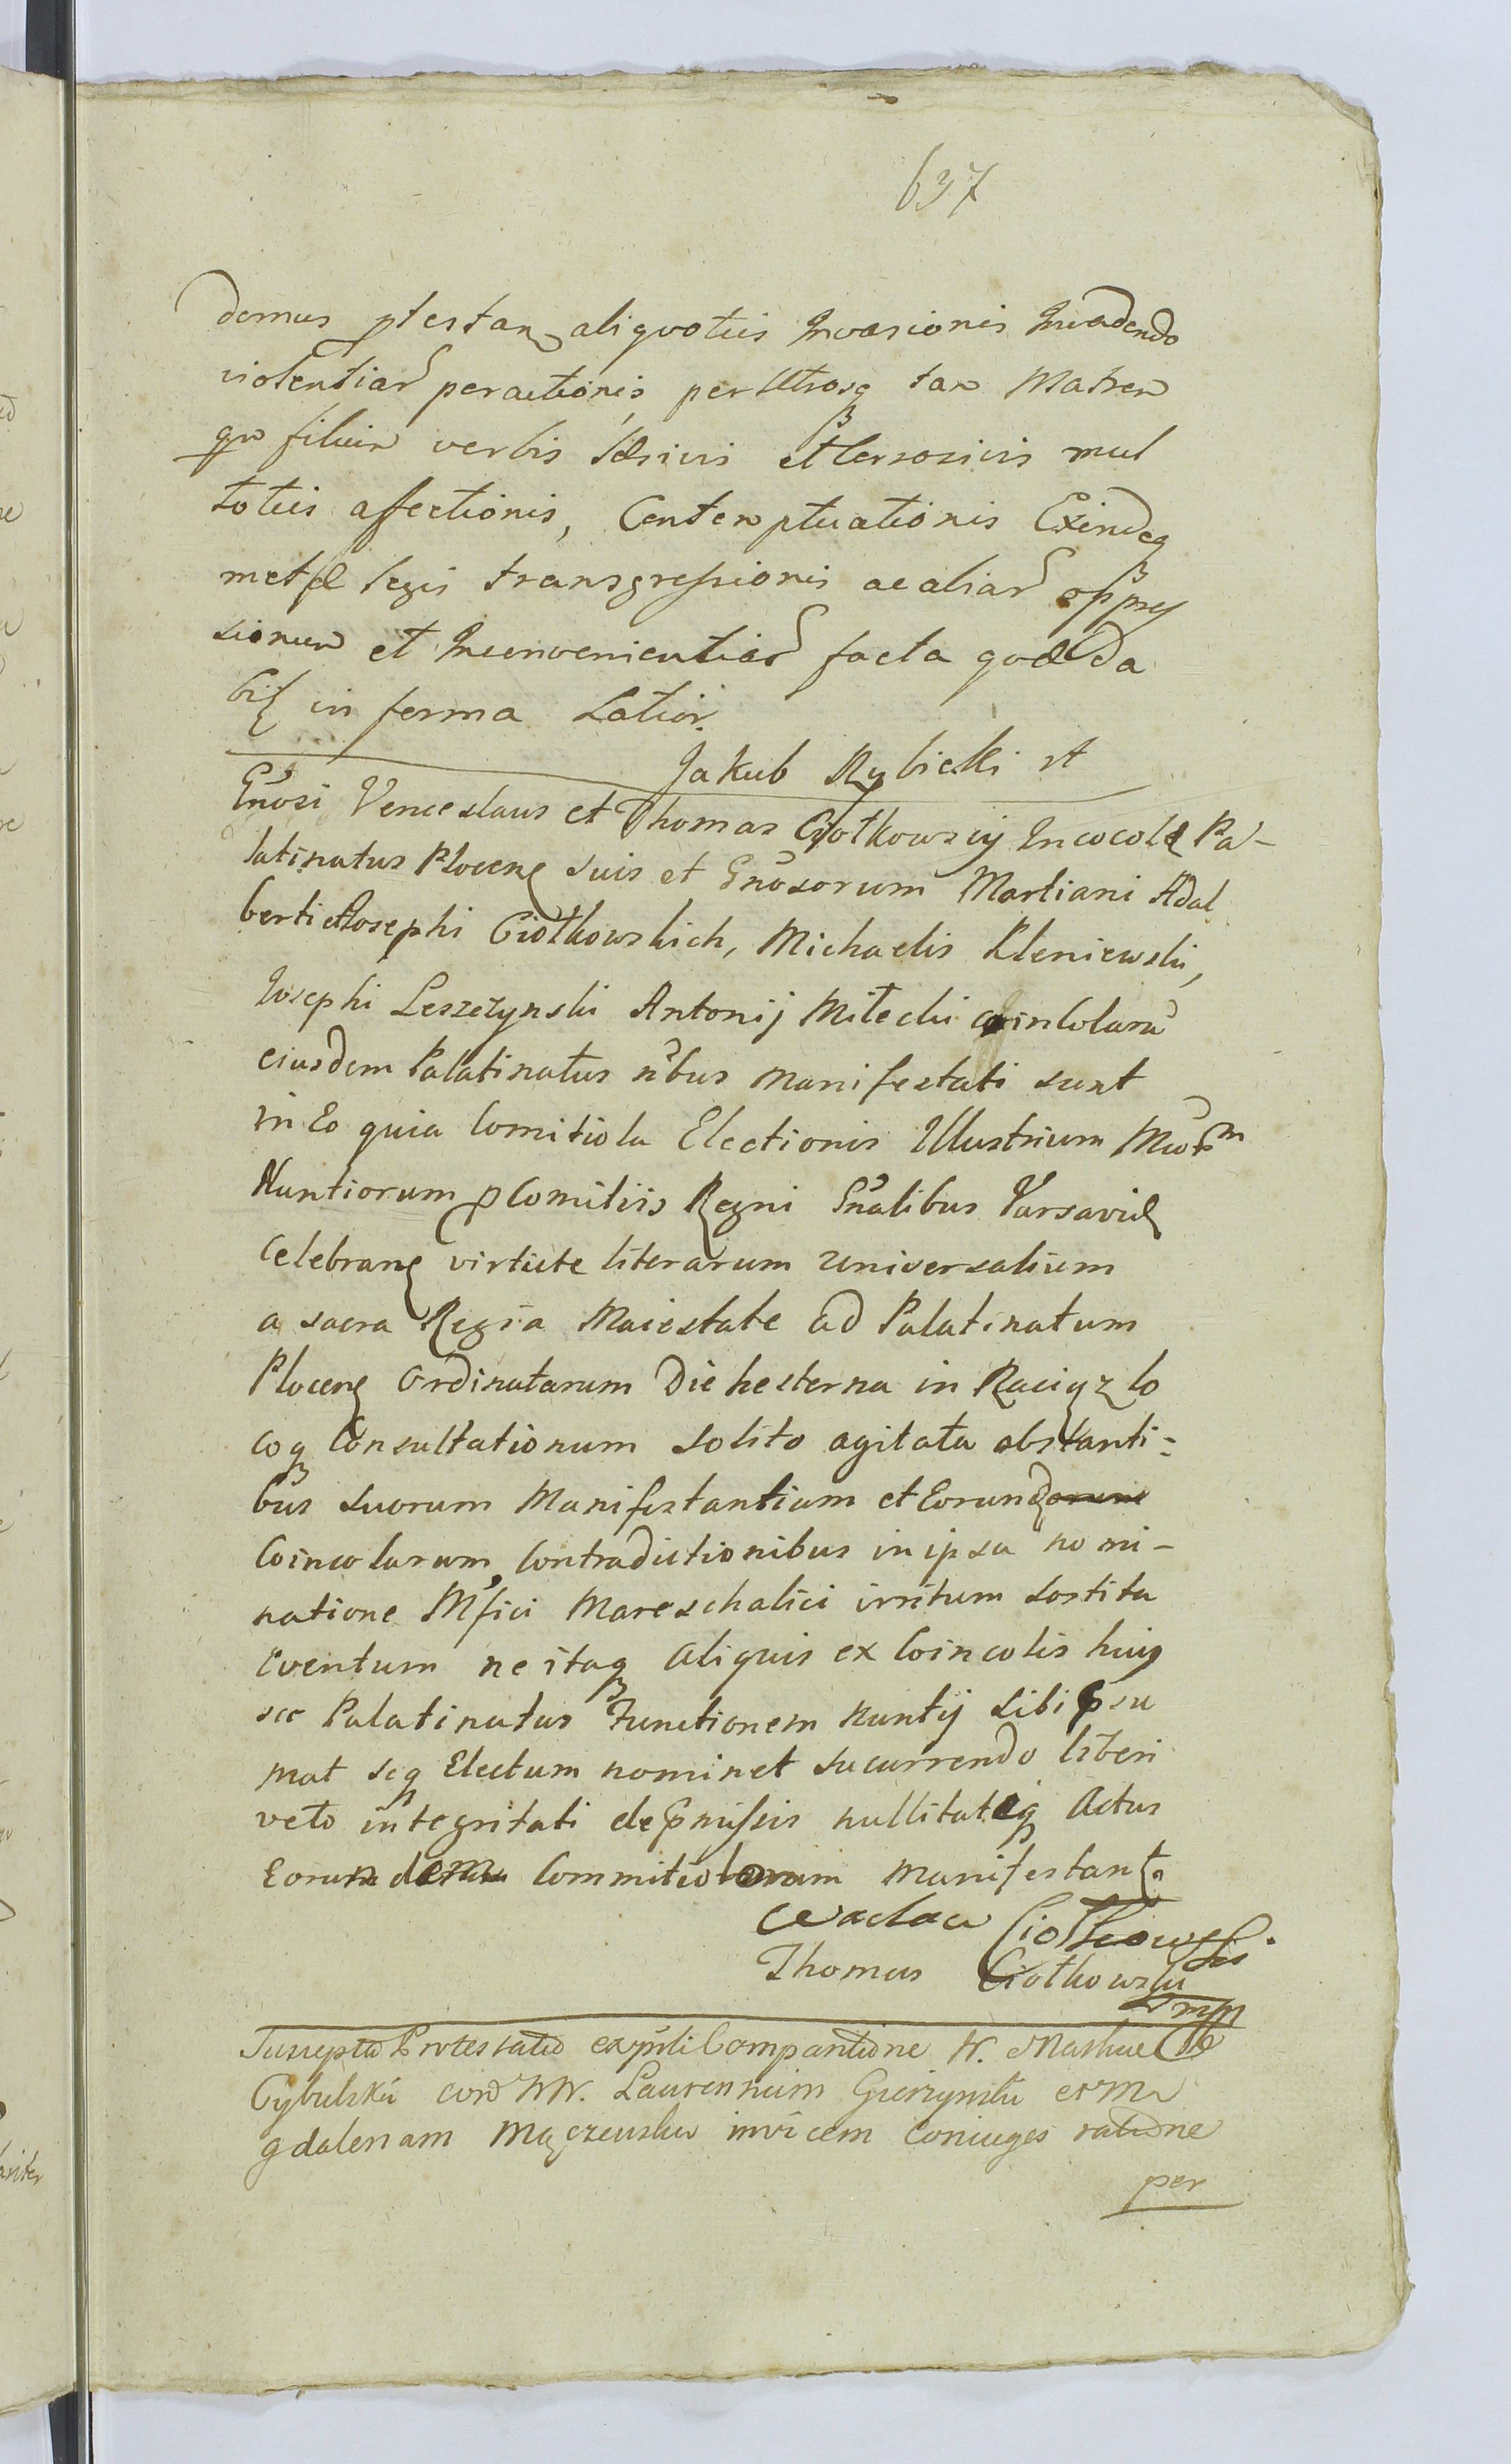 637
domus ptestan aliquoties Invasionis Invadendo
violentiar peractionis, per Utrosq tam Matrem
qm filium verbis Læsivis et terrorivis mul
toties affectionis, Contemptuationis Exindeq
metpæ legis transgressionis ac aliar oppres
sionum et Inconvenientiar facta quæ Da
bit in forma Latior.
Jakub Rybicki
Gnosi Venceslaus et Thomas Ciołkowscij Incocolæ Pa-
latinatus Plocens suis et Gnosorum Martiani Adal
berti et Josephi Ciołkowskich, Michaelis Kleniewski,
Josephi Leszczynski Antonij Miłecki coincolaru
eiusdem Palatinatus nõbus manifestati sunt
in Eo quia Comitiola Electionis Illustrium Mgfrm
Nuntiorum p Comitiis Regni Gnalibus Varsaviæ
Celebran virtute literarum universalium
a sacra Regia Maiestate ad Palatinatum
Plocens Ordinatarum Die hesterna in Raciąz lo
coq Consultationum solito agitata obstanti=
bus suorum Manifestantium et Eorund
Coincolarum, Contradictionibus in ipsa nomi-
natione Mfici Mareschalici irritum sortita
Eventum ne itaq Aliquis ex Coincolis huig
sce Palatinatus Functionem nuntij sibi psu
mat seq Electum nominet sucurrendo liberi
veto integritati de pmissis nullitateq Actus
Eorundem Commitiolorum manifestant.
Wacław Ciołkowski
Thomas Ciołkowski
mp
Suscepta Protestatio ex parti Compantione N. Mathiæ
Cybulski cord NN. Laurennium Gierzynski et Ma
gdalenam Mączewska invicem coniuges ratione
per